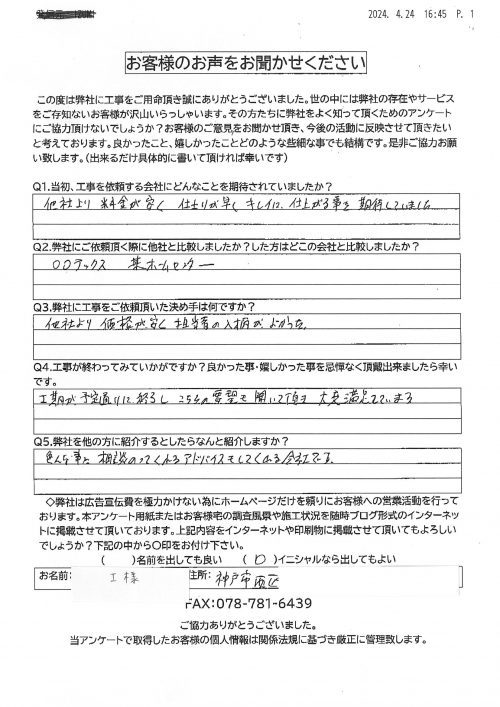 2024. 4.24 16:45 P. 1
お客様のお声をお聞かせください
この度は弊社に工事をご用命頂き誠にありがとうございました。世の中には弊社の存在やサービス
をご存知ないお客様が沢山いらっしゃいます。その方たちに弊社をよく知って頂くためのアンケート
にご協力頂けないでしょうか？お客様のご意見をお聞かせ頂き、今後の活動に反映させて頂きたい
と考えております。良かったこと、嬉しかったことどのような些細な事でも結構です。是非ご協力お願
い致します。（出来るだけ具体的に書いて頂ければ幸いです）
Q1.当初、工事を依頼する会社にどんなことを期待されていましたか？
他社より料金が安く 仕上りが早く キレイに仕上がる事を期待していました
Q2.弊社にご依頼頂く際に他社と比較しましたか？した方はどこの会社と比較しましたか？
〇〇テックス 某ホームセンター
Q3.弊社に工事をご依頼頂いた決め手は何ですか？
他社より価格が安く担当者の人柄がよかった
Q4.工事が終わってみていかがですか？良かった事・嬉しかった事を忌憚なく頂戴出来ましたら幸い
です。
工期が予定通りに終了し こちらの要望を聞いて頂き 大変満足している
Q5.弊社を他の方に紹介するとしたらなんと紹介しますか？
色んな事に相談のってくれるアドバイスもしてくれる会社である
◇弊社は広告宣伝費を極力かけない為にホームページだけを頼りにお客様への営業活動を行って
おります。本アンケート用紙またはお客様宅の調査風景や施工状況を随時ブログ形式のインターネッ
トに掲載させて頂いております。上記内容をインターネットや印刷物に掲載させて頂いてもよろしい
でしょうか？下記の中から〇印をお付け下さい。
（ ）名前を出しても良い （〇）イニシャルなら出してもよい
お名前： I 様 住所： 神戸市西区
FAX:078-781-6439
ご協力ありがとうございました。
当アンケートで取得したお客様の個人情報は関係法規に基づき厳正に管理致します。